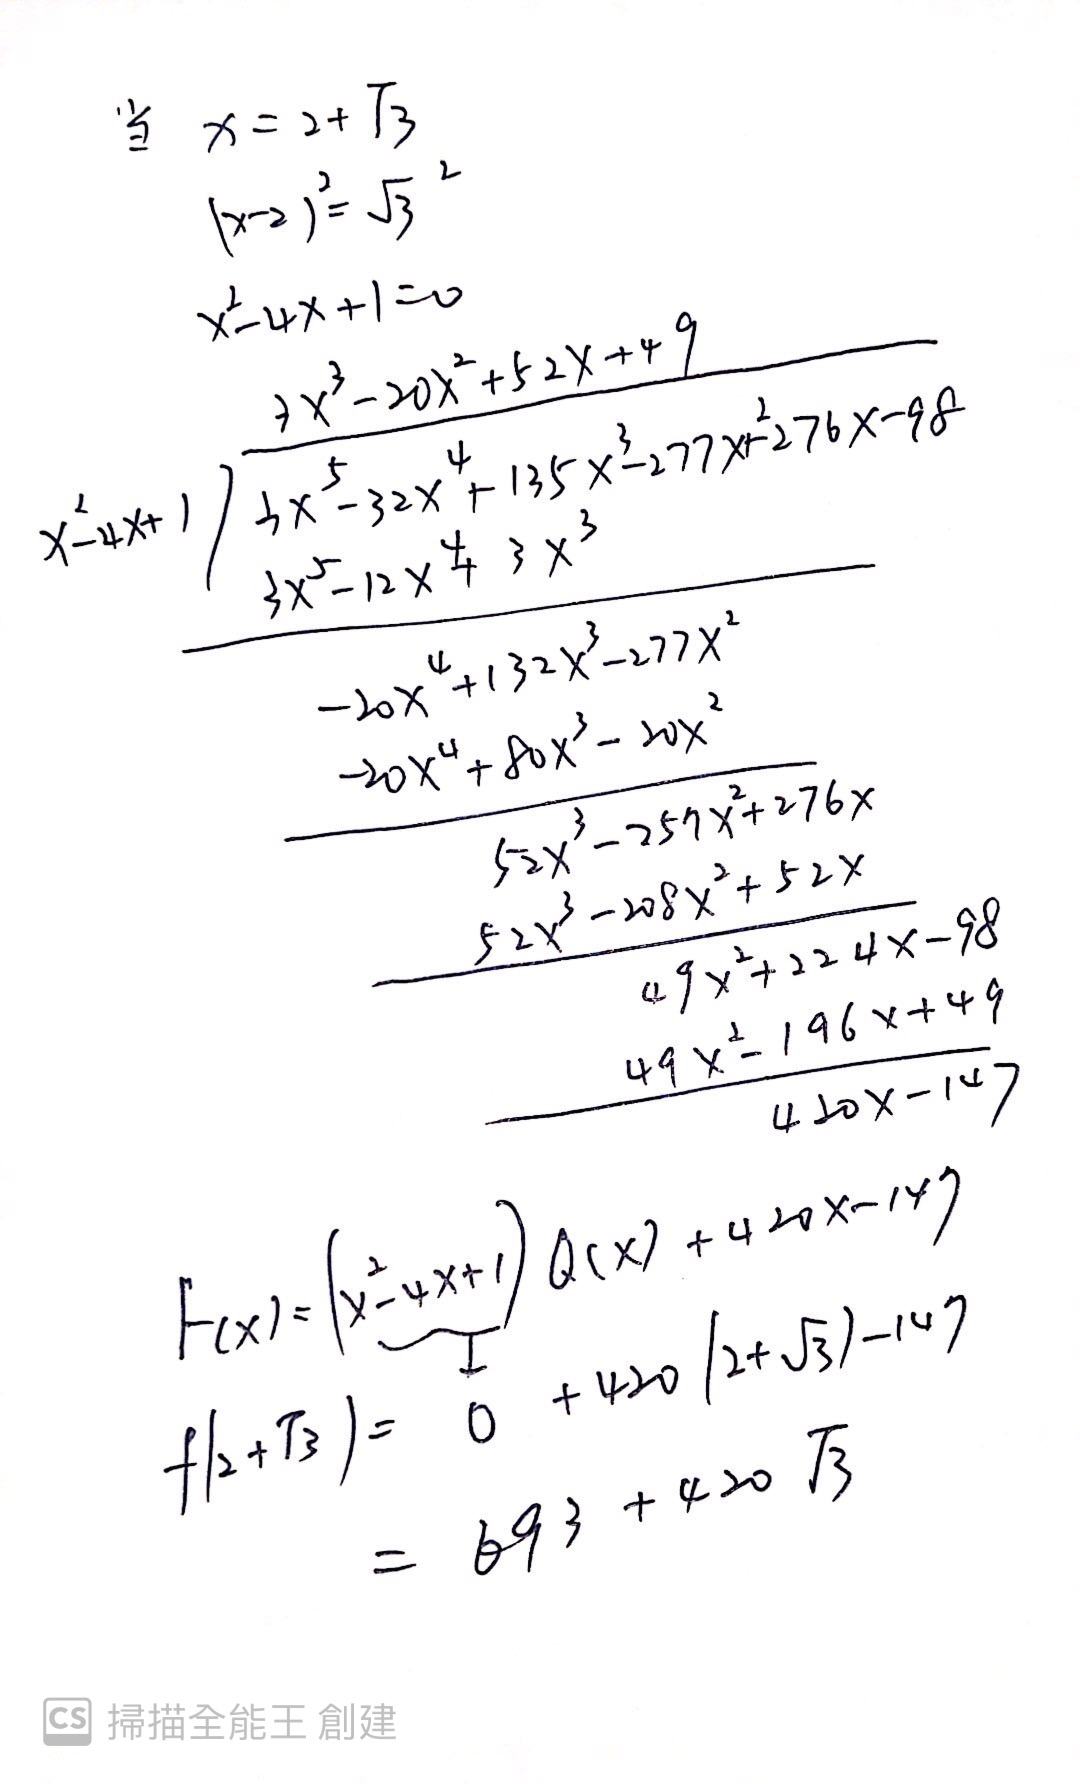 当 x = 2+√3
(x-2)² = √3²
x²-4x+1=0
3x³-20x²+52x+49
x²-4x+1 ) 3x⁵-32x⁴+135x³-277x²+276x-98
3x⁵-12x⁴+3x³
-20x⁴+132x³-277x²
-20x⁴+80x³-20x²
52x³-257x²+276x
52x³-208x²+52x
49x²+224x-98
49x²-196x+49
420x-147
F(x)=(x²-4x+1)Q(x)+420x-147
f(2+√3)= 0 +420(2+√3)-147
= 693+420√3
CS 掃描全能王 創建